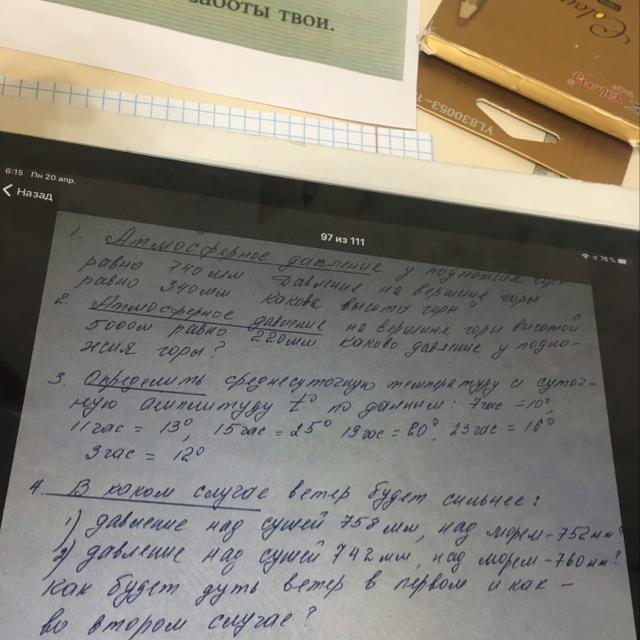 заботы твои.
YL830053-
6:15 Пн 20 апр.
76 %
Назад
97 из 111
1. Атмосферное давление у подножия
равно 740мм. Давление на вершине горы
равно 340мм Какова высота горы?
2. Атмосферное давление на вершине горы высотой
5000м равно 220мм Каково давление у подно-
жия горы?
3. Определить среднесуточную температуру и суточ-
ную амплитуду t° по данным: 7час = 10°,
11час = 13°, 15час = 25° 19час = 20°, 23час = 16°
3час = 12°
4. В каком случае ветер будет сильнее:
1) давление над сушей 758мм, над морем-752мм?
2) давление над сушей 742мм, над морем-760мм?
Как будет дуть ветер в первом и как -
во втором случае?